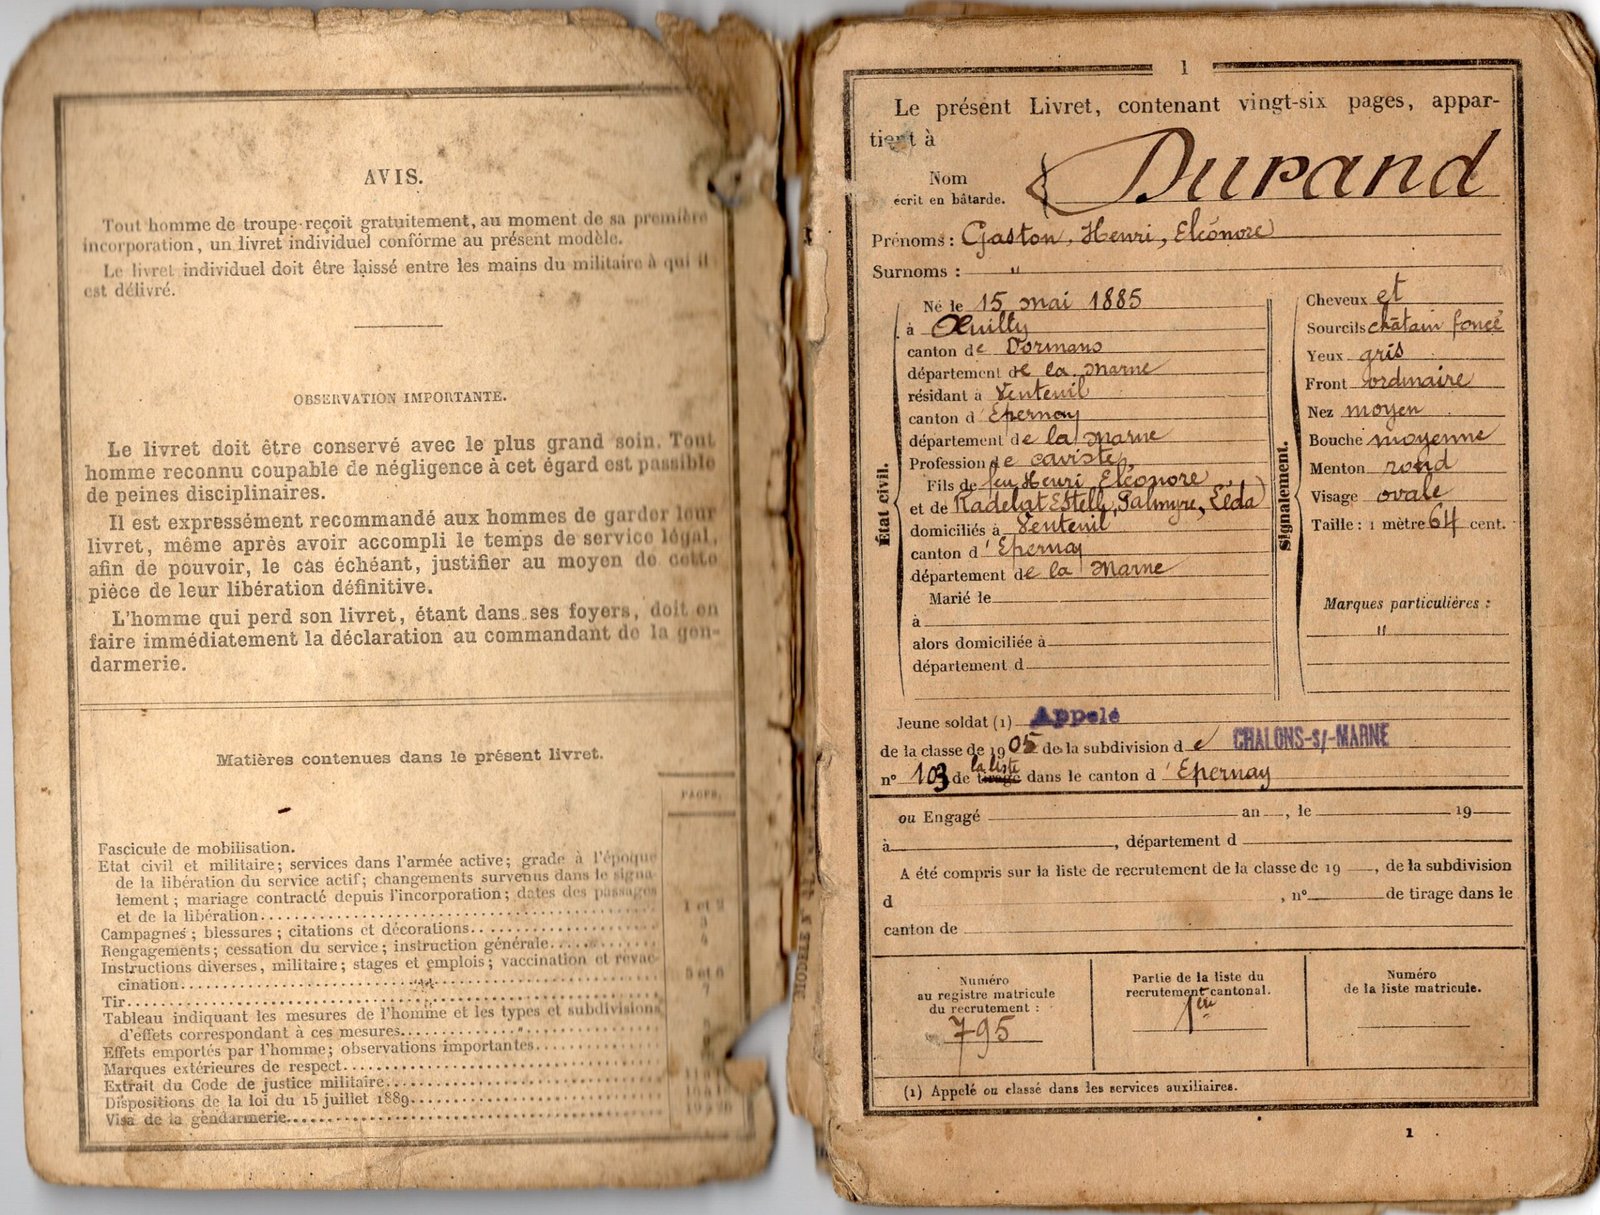 AVIS.
Tout homme de troupe reçoit gratuitement, au moment de sa première
incorporation, un livret individuel conforme au présent modèle.
Le livret individuel doit être laissé entre les mains du militaire à qui il
est délivré.
OBSERVATION IMPORTANTE.
Le livret doit être conservé avec le plus grand soin. Tout
homme reconnu coupable de négligence à cet égard est passible
de peines disciplinaires.
Il est expressément recommandé aux hommes de garder leur
livret, même après avoir accompli le temps de service légal,
afin de pouvoir, le cas échéant, justifier au moyen de cette
pièce de leur libération définitive.
L'homme qui perd son livret, étant dans ses foyers, doit en
faire immédiatement la déclaration au commandant de la gen-
darmerie.
Matières contenues dans le présent livret.
PAGES.
Fascicule de mobilisation.
Etat civil et militaire; services dans l'armée active; grade à l'époque
de la libération du service actif; changements survenus dans le signa-
lement; mariage contracté depuis l'incorporation; dates des passages
et de la libération 1 et 2
Campagnes; blessures; citations et décorations 3
Rengagements; cessation du service; instruction générale 4
Instructions diverses, militaire; stages et emplois; vaccination et revac-
cination 5 et 6
Tir 7
Tableau indiquant les mesures de l'homme et les types et subdivisions
d'effets correspondant à ces mesures
Effets emportés par l'homme; observations importantes
Marques extérieures de respect
Extrait du Code de justice militaire
Dispositions de la loi du 15 juillet 1889
Visa de la gendarmerie
MODÈLE
1
Le présent Livret, contenant vingt-six pages, appar-
tient à
Nom
écrit en bâtarde. Durand
Prénoms : Gaston, Henri, Eléonore
Surnoms : "
État civil.
Né le 15 mai 1885
à Œuilly
canton de Dormans
département de la Marne
résidant à Venteuil
canton d'Epernay
département de la Marne
Profession de caviste
Fils de feu Henri Eléonore
et de Radelat Estell, Palmyre, Léda
domiciliés à Venteuil
canton d'Epernay
département de la Marne
Marié le
à
alors domiciliée à
département d
Signalement.
Cheveux et
Sourcils châtain foncé
Yeux gris
Front ordinaire
Nez moyen
Bouche moyenne
Menton rond
Visage ovale
Taille : 1 mètre 64 cent.
Marques particulières :
"
Jeune soldat (1) Appelé
de la classe de 1905 de la subdivision de CHALONS-S/-MARNE
la liste
n° 103 de tirage dans le canton d'Epernay
ou Engagé an , le 19
à , département d
A été compris sur la liste de recrutement de la classe de 19 , de la subdivision
d , n° de tirage dans le
canton de
Numéro
au registre matricule
du recrutement :
795
Partie de la liste du
recrutement cantonal.
1ère
Numéro
de la liste matricule.
(1) Appelé ou classé dans les services auxiliaires.
1